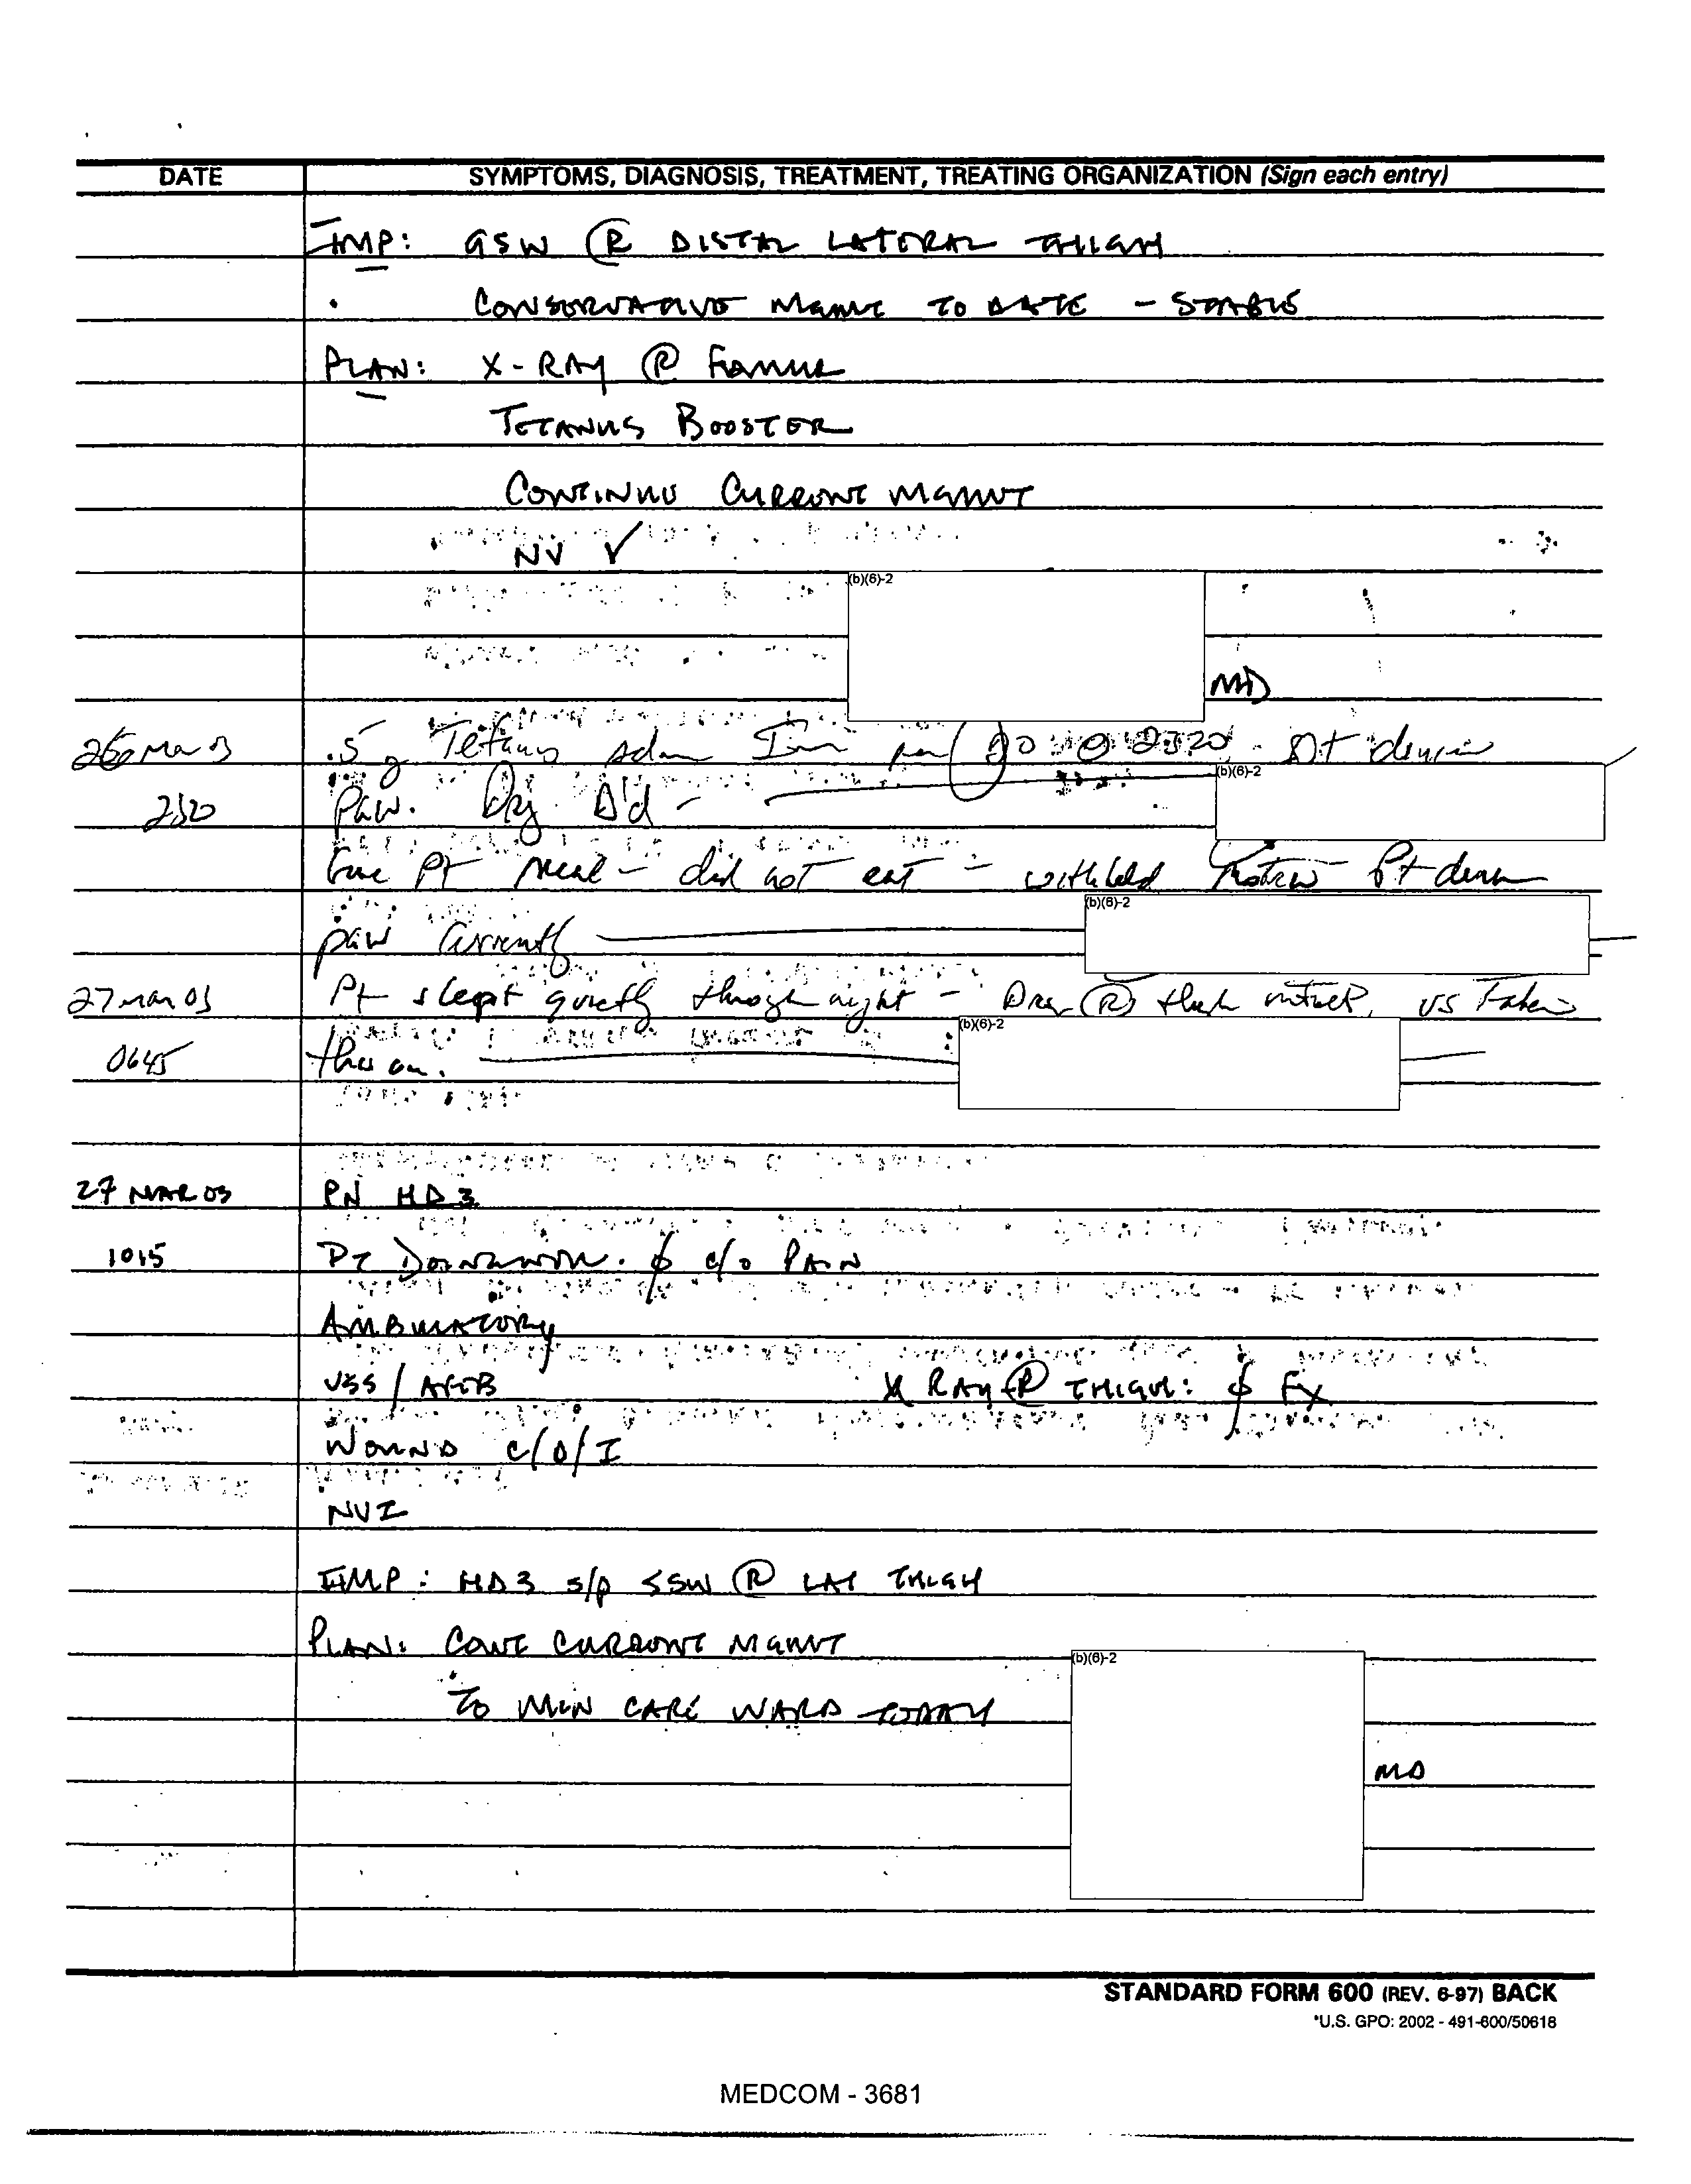 DATE SYMPTOMS, DIAGNOSIS, TREATMENT, TREATING ORGANIZATION (Sign each entry)
IMP: GSW Ⓡ DISTAL LATERAL THIGH
CONSERVATIVE MGMT TO DATE - STABLE
PLAN: X-RAY Ⓡ FEMUR
TETANUS BOOSTER
CONTINUE CURRENT MGMNT
NV ✓
(b)(6)-2
MD
.5 g Tetanus Adm @ 2320. Pt denies
(b)(6)-2
2320 Pain.
Gave Pt meal - did not eat - withheld Motrin Pt denies
(b)(6)-2
pain currently
27 Mar 03 Pt slept quietly through night - Ⓡ thigh intact, VS Taken
(b)(6)-2
0645 this am.
27 MAR 03 PN HD 3
1015 PT ∅ c/o PAIN
AMBULATORY
VSS / AFEB X RAY Ⓡ THIGH: ∅ Fx
WOUND C/D/I
NVI
IMP: HD3 s/p GSW Ⓡ LAT THIGH
PLAN: CONT CURRENT MGMNT
(b)(6)-2
TO MIN CARE WARD TODAY
MD
STANDARD FORM 600 (REV. 6-97) BACK
*U.S. GPO: 2002 - 491-600/50618
MEDCOM - 3681